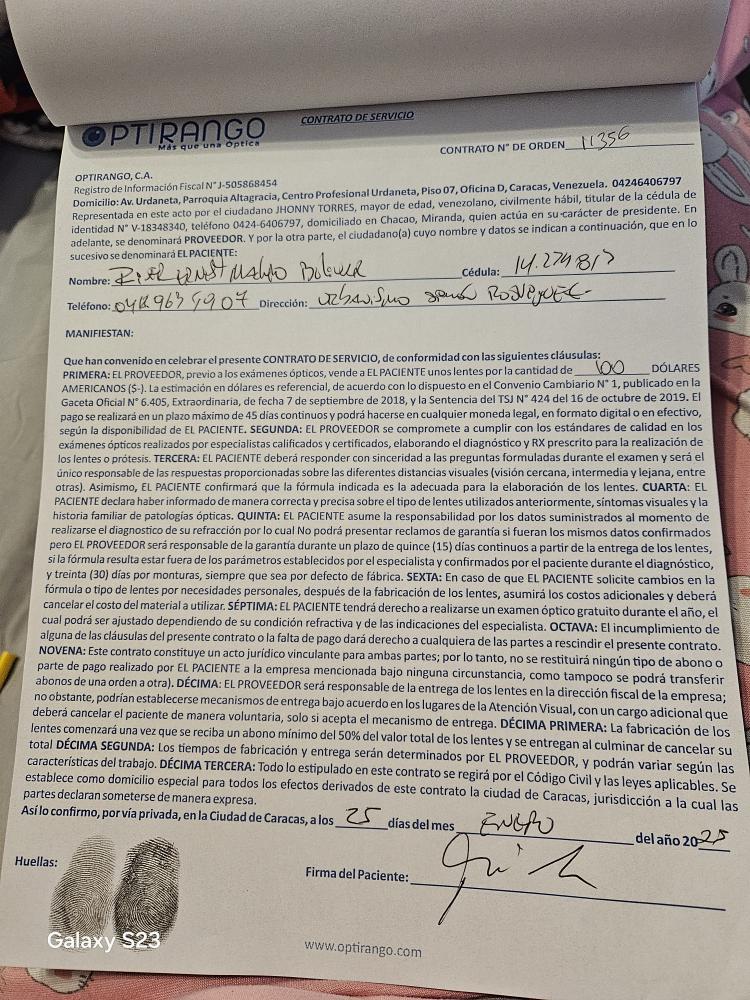 OPTIRANGO
Más que una Óptica
CONTRATO DE SERVICIO
CONTRATO N° DE ORDEN 11356
OPTIRANGO, C.A.
Registro de Información Fiscal N° J-505868454
Domicilio: Av. Urdaneta, Parroquia Altagracia, Centro Profesional Urdaneta, Piso 07, Oficina D, Caracas, Venezuela. 04246406797
Representada en este acto por el ciudadano JHONNY TORRES, mayor de edad, venezolano, civilmente hábil, titular de la cédula de
identidad N° V-18348340, teléfono 0424-6406797, domiciliado en Chacao, Miranda, quien actúa en su carácter de presidente. En
adelante, se denominará PROVEEDOR. Y por la otra parte, el ciudadano(a) cuyo nombre y datos se indican a continuación, que en lo
sucesivo se denominará EL PACIENTE:
Nombre: Cédula: 14.274817
Teléfono: Dirección: Urbanismo
MANIFIESTAN:
Que han convenido en celebrar el presente CONTRATO DE SERVICIO, de conformidad con las siguientes cláusulas:
PRIMERA: EL PROVEEDOR, previo a los exámenes ópticos, vende a EL PACIENTE unos lentes por la cantidad de 100 DÓLARES
AMERICANOS ($-). La estimación en dólares es referencial, de acuerdo con lo dispuesto en el Convenio Cambiario N° 1, publicado en la
Gaceta Oficial N° 6.405, Extraordinaria, de fecha 7 de septiembre de 2018, y la Sentencia del TSJ N° 424 del 16 de octubre de 2019. El
pago se realizará en un plazo máximo de 45 días continuos y podrá hacerse en cualquier moneda legal, en formato digital o en efectivo,
según la disponibilidad de EL PACIENTE. SEGUNDA: EL PROVEEDOR se compromete a cumplir con los estándares de calidad en los
exámenes ópticos realizados por especialistas calificados y certificados, elaborando el diagnóstico y RX prescrito para la realización de
los lentes o prótesis. TERCERA: EL PACIENTE deberá responder con sinceridad a las preguntas formuladas durante el examen y será el
único responsable de las respuestas proporcionadas sobre las diferentes distancias visuales (visión cercana, intermedia y lejana, entre
otras). Asimismo, EL PACIENTE confirmará que la fórmula indicada es la adecuada para la elaboración de los lentes. CUARTA: EL
PACIENTE declara haber informado de manera correcta y precisa sobre el tipo de lentes utilizados anteriormente, síntomas visuales y la
historia familiar de patologías ópticas. QUINTA: EL PACIENTE asume la responsabilidad por los datos suministrados al momento de
realizarse el diagnostico de su refracción por lo cual No podrá presentar reclamos de garantía si fueran los mismos datos confirmados
pero EL PROVEEDOR será responsable de la garantía durante un plazo de quince (15) días continuos a partir de la entrega de los lentes,
si la fórmula resulta estar fuera de los parámetros establecidos por el especialista y confirmados por el paciente durante el diagnóstico,
y treinta (30) días por monturas, siempre que sea por defecto de fábrica. SEXTA: En caso de que EL PACIENTE solicite cambios en la
fórmula o tipo de lentes por necesidades personales, después de la fabricación de los lentes, asumirá los costos adicionales y deberá
cancelar el costo del material a utilizar. SÉPTIMA: EL PACIENTE tendrá derecho a realizarse un examen óptico gratuito durante el año, el
cual podrá ser ajustado dependiendo de su condición refractiva y de las indicaciones del especialista. OCTAVA: El incumplimiento de
alguna de las cláusulas del presente contrato o la falta de pago dará derecho a cualquiera de las partes a rescindir el presente contrato.
NOVENA: Este contrato constituye un acto jurídico vinculante para ambas partes; por lo tanto, no se restituirá ningún tipo de abono o
parte de pago realizado por EL PACIENTE a la empresa mencionada bajo ninguna circunstancia, como tampoco se podrá transferir
abonos de una orden a otra). DÉCIMA: EL PROVEEDOR será responsable de la entrega de los lentes en la dirección fiscal de la empresa;
no obstante, podrían establecerse mecanismos de entrega bajo acuerdo en los lugares de la Atención Visual, con un cargo adicional que
deberá cancelar el paciente de manera voluntaria, solo si acepta el mecanismo de entrega. DÉCIMA PRIMERA: La fabricación de los
lentes comenzará una vez que se reciba un abono mínimo del 50% del valor total de los lentes y se entregan al culminar de cancelar su
total DÉCIMA SEGUNDA: Los tiempos de fabricación y entrega serán determinados por EL PROVEEDOR, y podrán variar según las
características del trabajo. DÉCIMA TERCERA: Todo lo estipulado en este contrato se regirá por el Código Civil y las leyes aplicables. Se
establece como domicilio especial para todos los efectos derivados de este contrato la ciudad de Caracas, jurisdicción a la cual las
partes declaran someterse de manera expresa.
Así lo confirmo, por vía privada, en la Ciudad de Caracas, a los 25 días del mes ENERO del año 2025
Huellas:
Firma del Paciente:
Galaxy S23
www.optirango.com